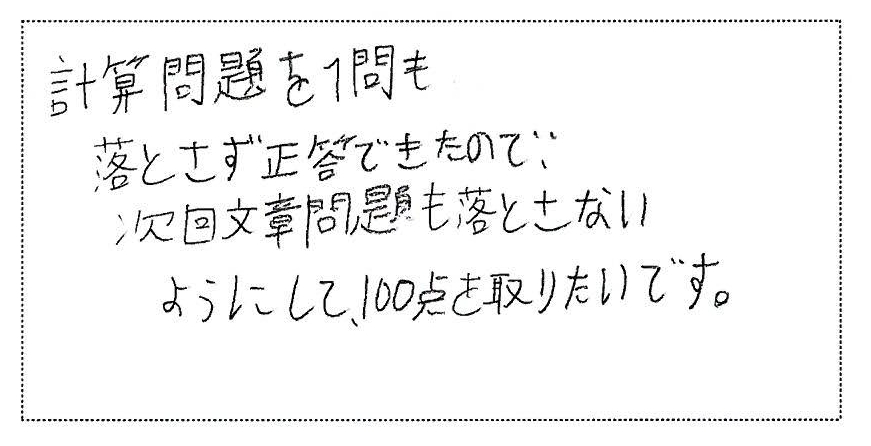 計算問題を1問も
落とさず正答できたので、
次回文章問題も落とさない
ようにして、100点を取りたいです。